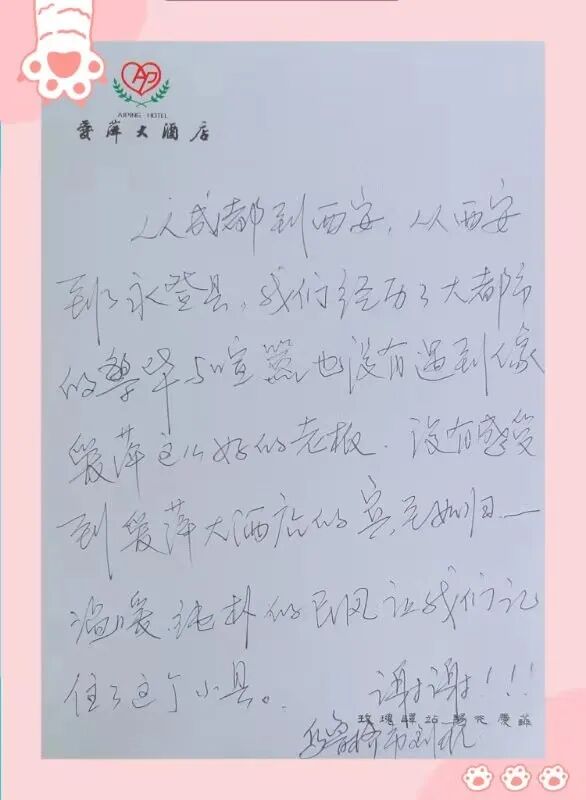 AP
AIPING HOTEL
爱萍大酒店
从成都到西安，从西安
到了永登县，我们经历了大都市
的繁华与喧嚣也没有遇到像
爱萍这么好的老板．没有感受
到爱萍大酒店的宾至如归——
温暖．纯朴的民风让我们记
住了这个小县。 谢谢！！！
玫瑰驿站